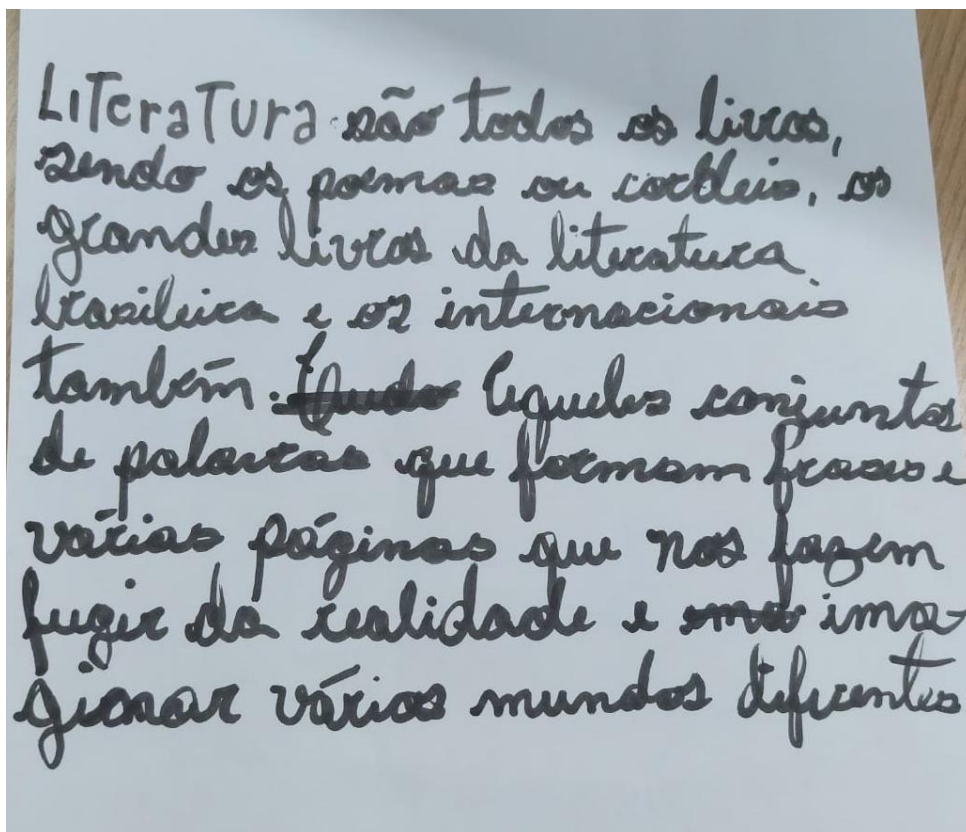 Literatura são todos os livros,
sendo os poemas ou cordéis, os
grandes livros da literatura
brasileira e os internacionais
também. Aqueles conjuntos
de palavras que formam frases e
várias páginas que nos fazem
fugir da realidade e ima-
ginar vários mundos diferentes